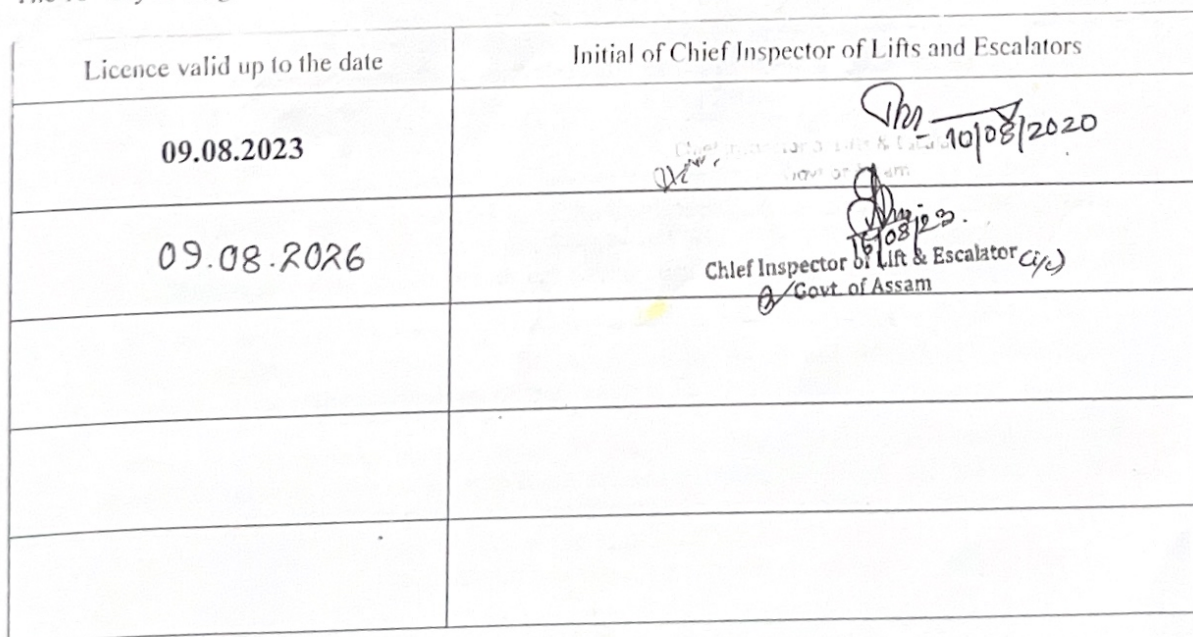 Licence valid up to the date
Initial of Chief Inspector of Lifts and Escalators
09.08.2023
10/08/2020
09.08.2026
16/08/23.
Chief Inspector of Lift & Escalator (i/c)
Govt. of Assam